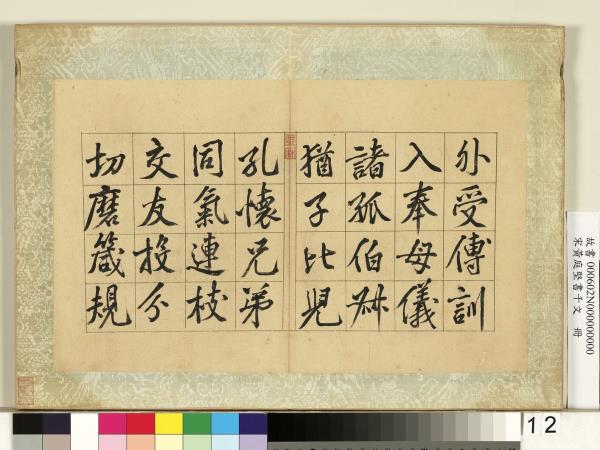 外受傅訓
入奉母儀
諸孤伯叔
猶子比兒
孔懷兄弟
同氣連枝
交友投分
切磨箴規
故書 000602N000000000
宋黃庭堅書千文 冊
12